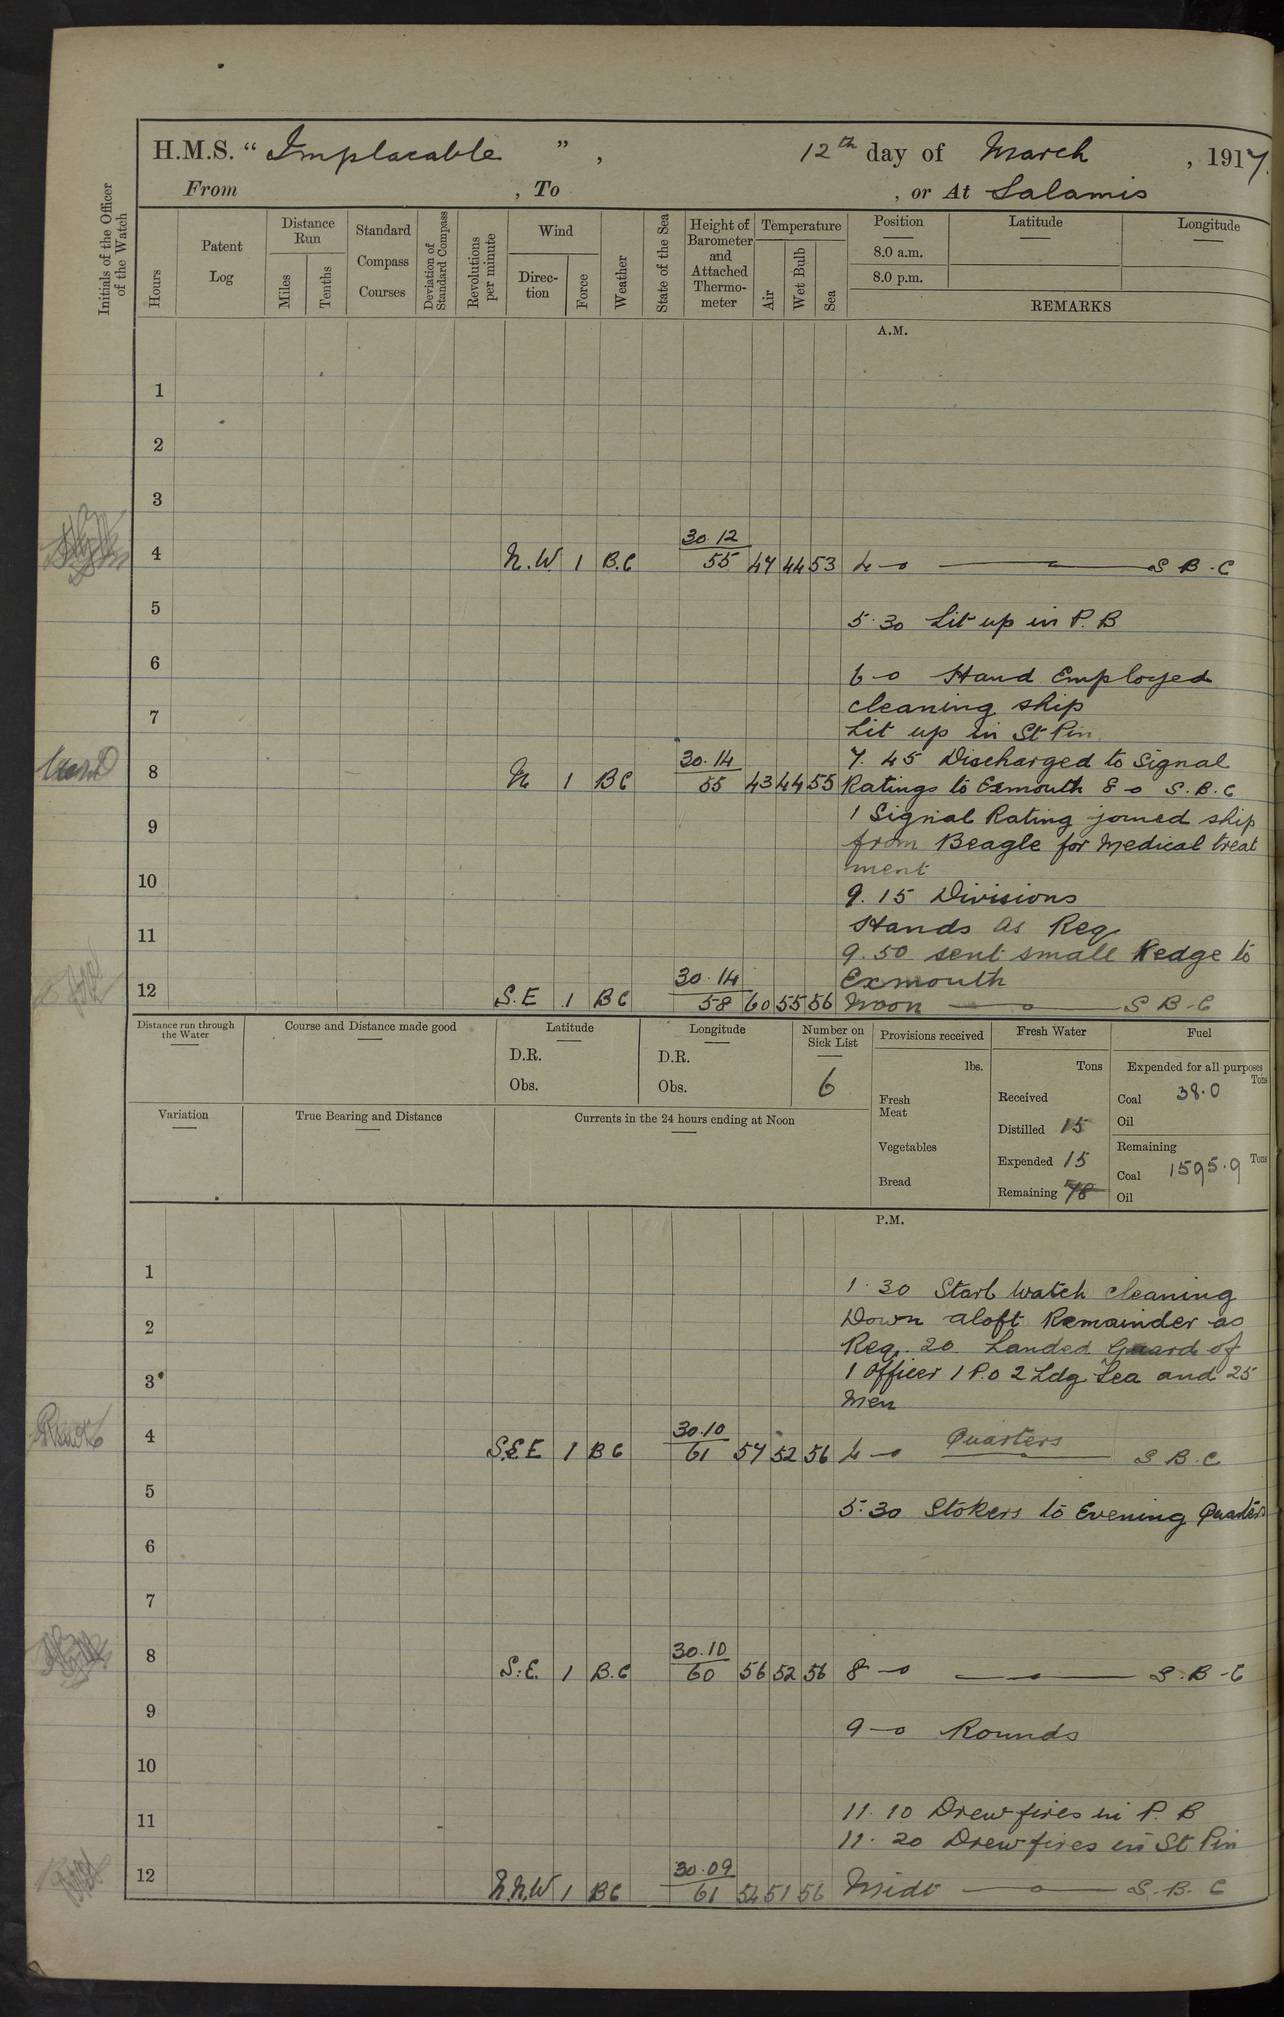 H.M.S. “ Implacable ” , 12th day of March , 1917.
From , To , or At Salamis
Initials of the Officer of the Watch
Hours
Patent Log
Distance Run
Miles
Tenths
Standard Compass Courses
Deviation of Standard Compass
Revolutions per minute
Wind
Direc-tion
Force
Weather
State of the Sea
Height of Barometer and Attached Thermo-meter
Temperature
Air
Wet Bulb
Sea
Position
8.0 a.m.
8.0 p.m.
Latitude
Longitude
REMARKS
A.M.
1
2
3
30.12
4 N.W 1 B.C 55 47 44 53 4-0 S B.C
5 5.30 Lit up in P.B
6 6-0 Hand Employed
cleaning ship
7 Lit up in St Pin
30.14 7.45 Discharged to Signal
8 N 1 BC 55 43 44 55 Ratings to Exmouth 8-0 S.B.C
1 Signal Rating joined ship
9 from Beagle for Medical treat
ment
10 9.15 Divisions
Hands as Req
11 9.50 sent small Kedge to
30.14 Exmouth
12 S.E 1 BC 58 60 55 56 Noon S B-C
Distance run through the Water
Course and Distance made good
Latitude
D.R.
Obs.
Longitude
D.R.
Obs.
Number on Sick List
6
Provisions received
lbs.
Fresh Meat
Vegetables
Bread
Fresh Water
Tons
Received
Distilled 15
Expended 15
Remaining 78
Fuel
Expended for all purposes
Tons
Coal 38.0
Oil
Remaining
Tons
Coal 1595.9
Oil
Variation
True Bearing and Distance
Currents in the 24 hours ending at Noon
P.M.
1 1.30 Starb Watch cleaning
2 Down aloft Remainder as
Req. 20 Landed Guard of
3 1 Officer 1 P.O 2 Ldg Sea and 25
Men
30.10 Quarters
4 S.E.E 1 BC 61 57 52 56 4-0 S B.C
5 5.30 Stokers to Evening Quarters
6
7
30.10
8 S.E. 1 B.C 60 56 52 56 8-0 S.B-C
9 9-0 Rounds
10
11 11.10 Drew fires in P.B
11.20 Drew fires in St Pin
30.09
12 N.N.W 1 BC 61 54 51 56 Midt S.B.C